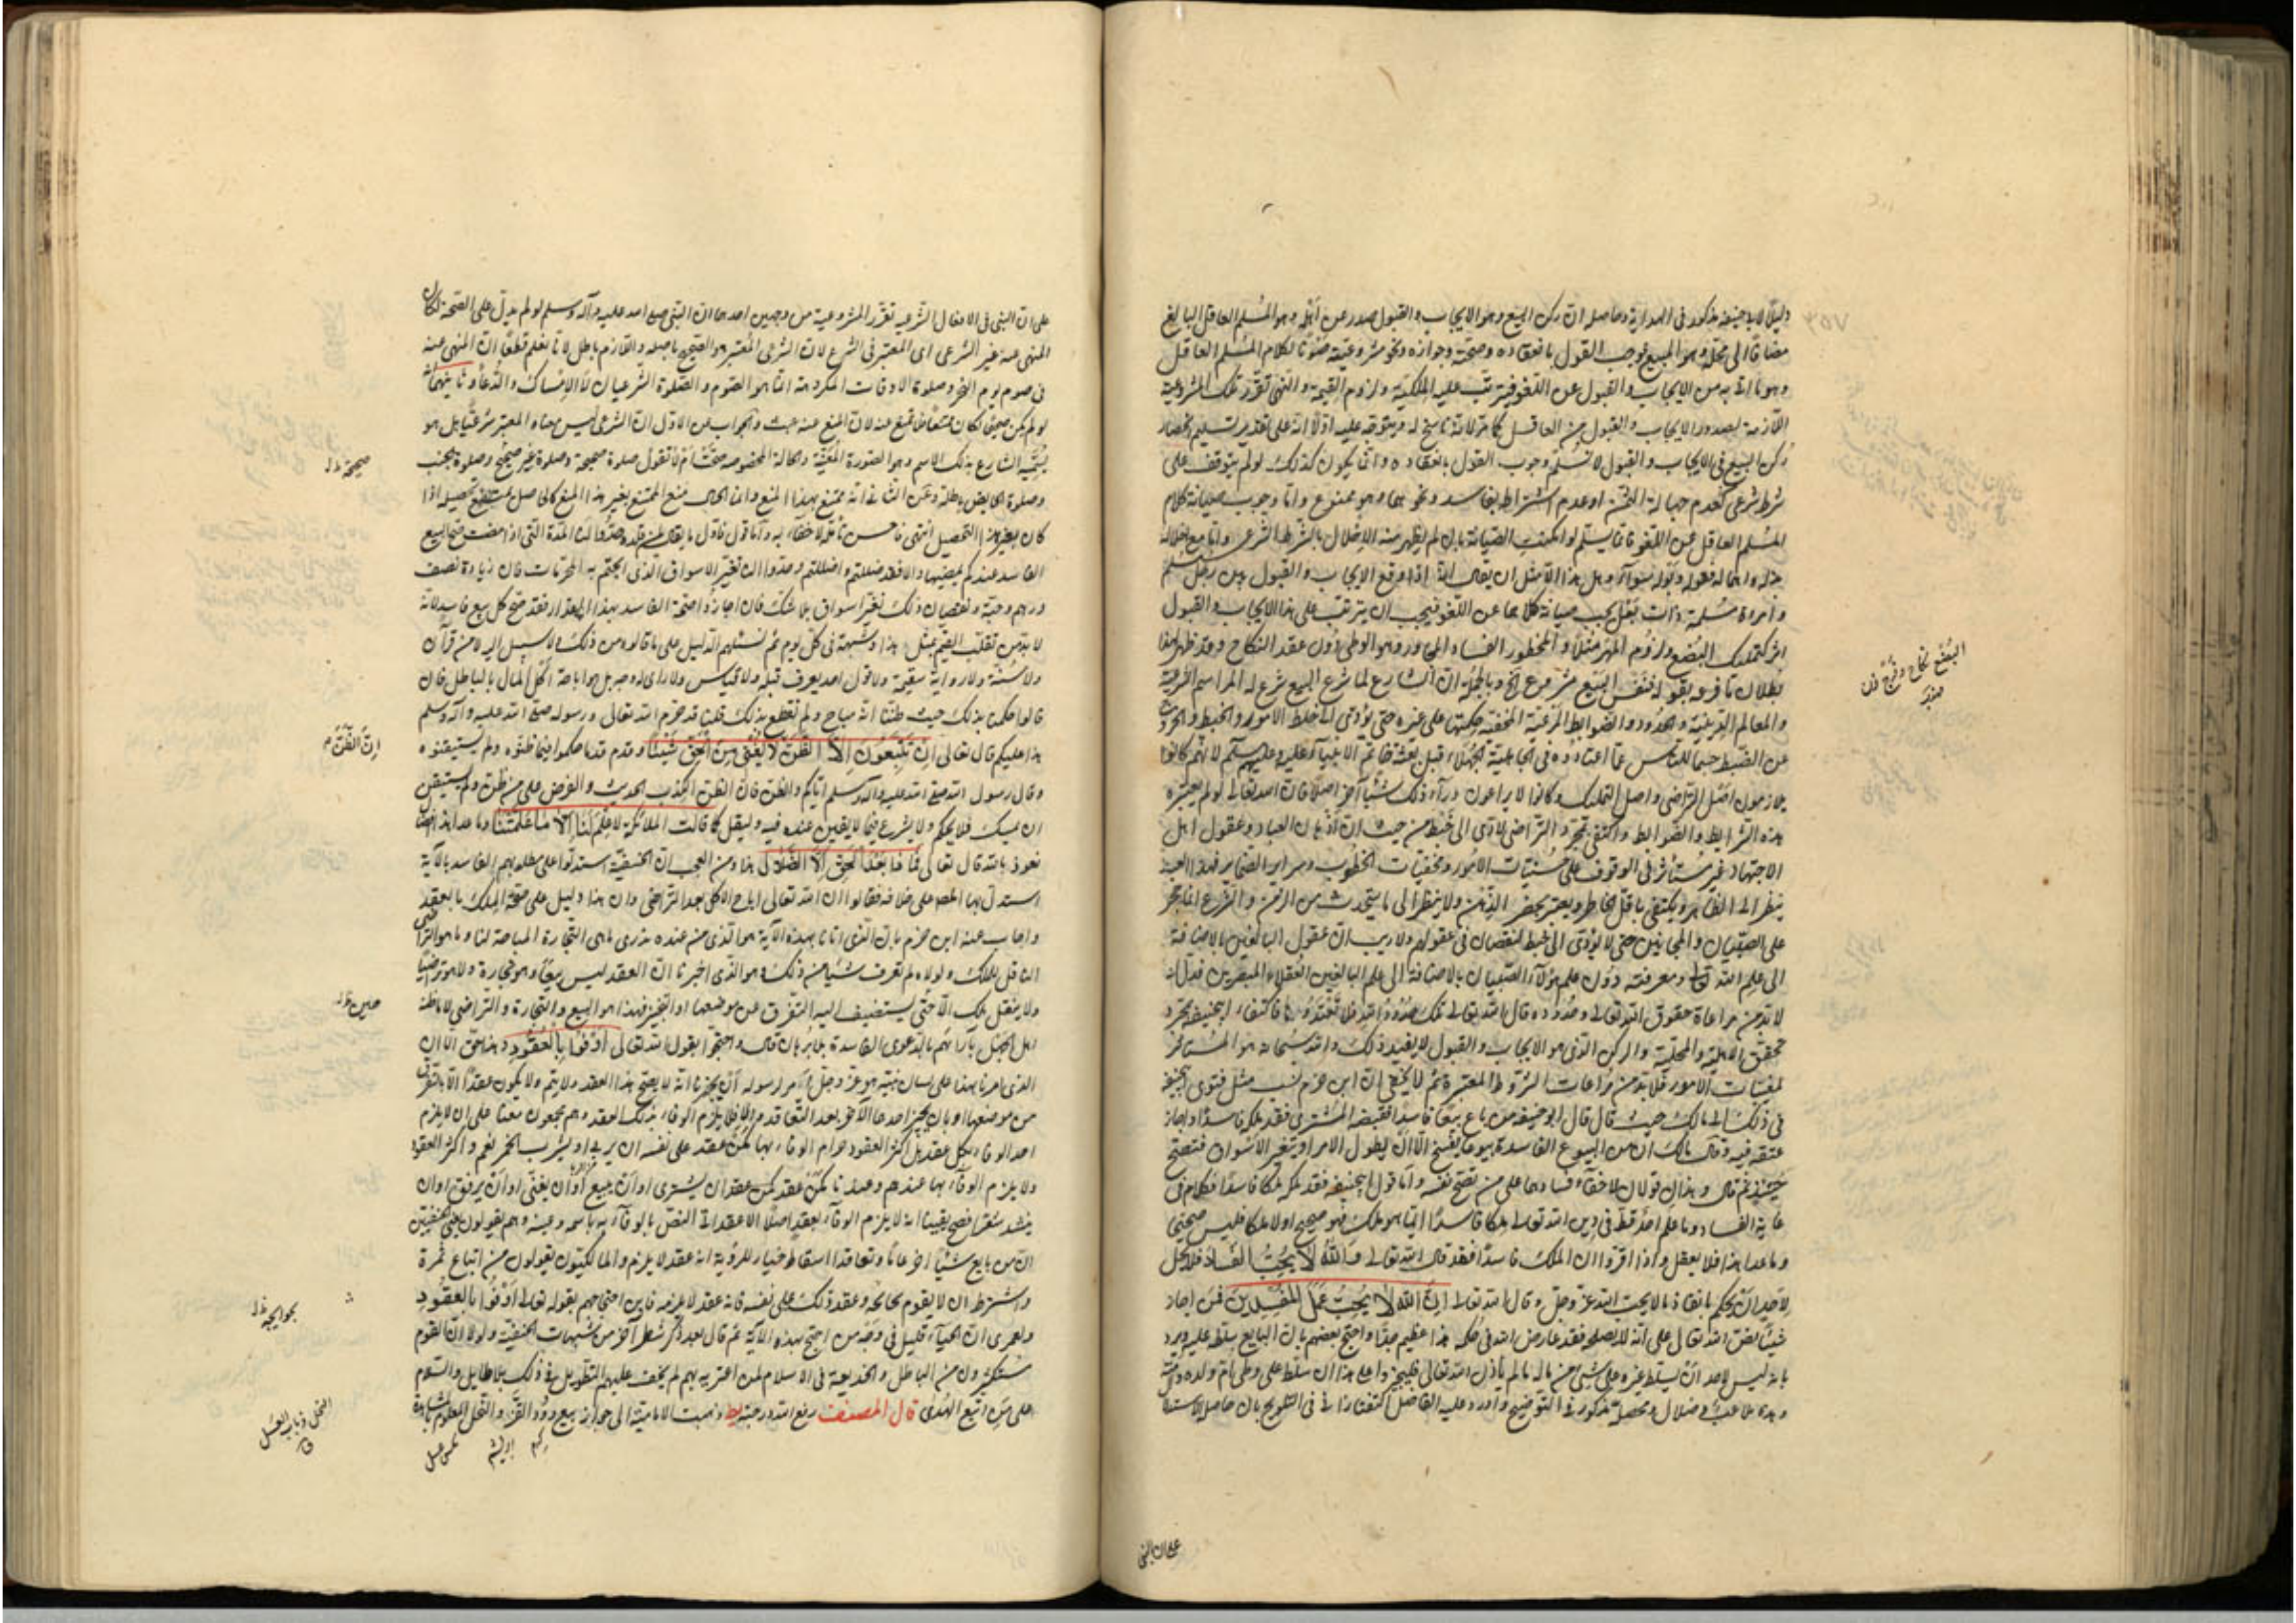 دليل لابي حنيفة مذكور في الهداية وحاصله ان ركن البيع وهو الايجاب والقبول صدر عن اهله وهو المسلم العاقل البالغ
مضافا الى محله وهو المبيع فوجب القول بانعقاده وصحته وجوازه ونحو مشروعيته صونا لكلام المسلم العاقل
وهو ما اتى به من الايجاب والقبول عن اللغو فيترتب عليه الملكية ولزوم القيمة والنهي تقرر تلك المشروعية
اللازمة لصدور الايجاب والقبول من العاقل كما مر لانه ناسخ له ويتوجه عليه اولا انه على تقدير تسليم انحصار
ركن البيع في الايجاب والقبول لا نسلم وجوب القول بانعقاده وانما يكون كذلك لو لم يتوقف على
شرط شرعي كعدم جهالة الثمن او عدم اشتراط فاسد ونحوهما وهو ممنوع واما وجوب صيانة كلام
المسلم العاقل عن اللغو فانما يسلم لو امكنت الصيانة بان لم يظهر منه الاخلال بالشرط الشرعي واما مع اخلاله
وهل هذا الا مثل ان يقال انه اذا وقع الايجاب والقبول بين رجل مسلم
وامراة مسلمة ذات بعل يجب صيانة كلامهما عن اللغو فيجب ان يترتب على هذا الايجاب والقبول
اثر كتملك البضع ولزوم المهر مثلا والمحظور الفساد المجاور وهو الوطي دون عقد النكاح وقد ظهر بهذا
بطلان ما فرعه بقوله فنفس البيع مشروع الخ وبالجملة ان الشارع لما شرع البيع شرع له المراسم الشرعية
والمعالم الدينية والحدود والضوابط المرعية حتى يؤدي الى خلط الامور والخبط والخروج
عن الضبط حسما للناس عما اعتادوه في الجاهلية الجهلاء قبل بعثة خاتم الانبياء عليه وعليهم السلم لانهم كانوا
يلازمون اصل التراضي واصل التملك وكانوا لا يراعون وراء ذلك شيئا آخر اصلا فان الله تعالى لو لم يعتبر
هذه الشرايط والضوابط واكتفى بمجرد التراضي لادى الى خبط من حيث ان اذهان العباد وعقول اهل
الاجتهاد غير مستأثر في الوقوف على الامور ومخفيات الخطوب وسراير الضماير فهذا العبد
ينظر الى الظاهر ويكتفي باقل الخاطر ويعتبر بحضر الذهن ولا ينظر الى ما يتحدث من الزمن والشرع انما حجر
على الصبيان والمجانين حتى لا يؤدي الى خبط لنقصان في عقولهم ولا ريب ان عقول البالغين بالاضافة
الى علم الله تعالى ومعرفته دون علم هؤلاء الصبيان بالاضافة الى علم البالغين العقلاء المبصرين فدل انه
لا بد من مراعاة حقوق الله تعالى وحدوده قال الله تعالى تلك حدود الله فلا تعتدوها فاكتفاء ابي حنيفة بمجرد
تحقق الاهلية والمحلية والركن الذي هو الايجاب والقبول لا يفيد ذلك والله سبحانه هو المستأثر
بمغيبات الامور فلا بد من مراعات الشروط المعتبرة ثم لا يخفى ان ابن حزم نسب مثل فتوى ابي حنيفة
في ذلك الى مالك حيث قال قال ابو حنيفة من باع بيعا فاسدا فقبضه المشتري فقد ملكه ملكا فاسدا واجاز
عتقه فيه وقال مالك ان من البيوع الفاسدة بيوعا يفسخ الا ان يطول الامر او يتغير الاسواق فتصح
حينئذ ثم قال وهذان قولان لا خفاء بفسادهما على من نصح نفسه واما قول ابي حنيفة فقد ملكه ملكا فاسدا فكلام في
غاية الفساد وما علم احد قط في دين الله تعالى ملكا فاسدا انما هو ملك فهو صحيح او لا ملك فليس صحيحا
وما عدا هذا فلا يعقل واذا اقروا ان الملك فاسد فقد قال الله تعالى والله لا يحب الفساد فلا يحل
لاحد ان يحكم بانفاذ ما لا يحب الله عز وجل وقال الله تعالى ان الله لا يحب عمل المفسدين فمن اجاز
شيئا نص الله تعالى على انه لا يصلحه فقد عارض الله في حكمه هذا عظيم جدا واحتج بعضهم بان البايع سلطه عليه ورد
بانه ليس لاحد ان يسلط غيره على شيء من ماله ما لم ياذن الله تعالى فليجيزوا على هذا ان سلطه على وطي ام ولده وامته
وهذا تلاعب وضلال ومحصله مذكور في التوضيح واورد عليه الفاضل التفتازاني في التلويح بان حاصل الاستدلال
البضع نكاح وفرج
على ان النهي
على ان النهي في الافعال الشرعية تقرر المشروعية من وجهين احدهما ان النهي صلى الله عليه وآله وسلم لو لم يدل على الصحة لكان
المنهي عنه غير الشرعي اي المعتبر في الشرع لان الشرعي المعتبر هو الصحيح باصله واللازم باطل لانا نعلم قطعا ان المنهي عنه
في صوم يوم النحر وصلوة الاوقات المكروهة انما هو الصوم والصلوة الشرعيان لا الامساك والدعاء وثانيهما انه
لو لم يكن صحيحا لكان ممتنعا فلا يمنع عنه لان المنع عنه عبث والجواب عن الاول ان الشرعي ليس معناه المعتبر شرعا بل هو
يسميه الشارع بذلك الاسم وهو الصورة المعينة والحالة المخصوصة صحت ام لا تقول صلوة صحيحة وصلوة غير صحيح وصلوة الجنب
وصلوة الحايض باطلة وعن الثاني انه ممتنع بهذا المنع وانما المحال منع الممتنع بغير هذا المنع كالحاصل يمتنع تحصيله اذا
كان بغير هذا التحصيل انتهى فاحسن تأمله لاخفاء به واما قول
الفاسد عندكم بمضيها والا فقد ضللتم واضللتم وحدوا لنا تغير الاسواق الذي ابحتم به المحرمات فان زيادة نصف
درهم وحبة ونقصان ذلك تغير اسواق بلا شك فان اجازوا صحة الفاسد بهذا المقدار فقد صح كل بيع فاسد لانه
لا بد من تقلب القيم بمثل هذا وشبهه في كل يوم ثم نسئلهم الدليل على ما قالوه من ذلك ولا سبيل اليه لا من قرآن
ولا سنة ولا رواية سقيمة ولا قول احد يعرف قبله ولا قياس ولا راي له وجه بل هو اباحة اكل المال بالباطل فان
قالوا حكمنا بذلك حيث ظننا انه مباح ولم نقطع بذلك قلنا قد حرم الله تعالى ورسوله صلى الله عليه وآله وسلم
هذا عليكم قال تعالى ان تتبعون الا الظن لا يغني من الحق شيئا وقدم قد حكموا فيما ظنوه ولم يستيقنوه
وقال رسول الله صلى الله عليه وآله وسلم اياكم والظن فان الظن اكذب الحديث والفرض على من ظن ولم يستيقن
ان يمسك فلا يحكم ولا يشرع فيما لا يقين عنده فيه وليقل كما قالت الملائكة لا علم لنا الا ما علمتنا وما عدا هذا فضلال
نعوذ بالله قال تعالى فماذا بعد الحق الا الضلال هذا ومن العجب ان الحنفية استدلوا على مطلوبهم الفاسد بالآية
استدل بها المص على خلافه فقالوا ان الله تعالى اباح الاكل بعد التراضي وان هذا دليل على صحة الملك بالعقد
واجاب عنه ابن حزم بان الذي اتانا بهذه الآية هو الذي من عنده ندري ما هي التجارة المباحة لنا وما هو التراضي
الناقل للملك ولولاه لم نعرف شيئا من ذلك وهو الذي اخبرنا ان العقد ليس بيعا وهو تجارة ولا هو تراضيا
ولا ينقل ملك الا حتى يستضيف اليه التفرق عن موضعهما او التخيير فهذا هو البيع والتجارة والتراضي لا ما ظنه
اهل الجهل بآرائهم بالدعوى الفاسدة بلا برهان قال واحتجوا بقول الله تعالى اوفوا بالعقود وهذا حق الا ان
الذي امرنا بهذا على لسان نبيه هو عز وجل امر رسوله ان يخبرنا انه لا يصح هذا العقد ولا يتم ولا يكون عقدا الا بالتفرق
من موضعهما او بان يخير احدهما الآخر بعد التعاقد والا فلا يلزم الوفاء بذلك العقد وهم مجمعون معنا على ان لا يلزم
احد الوفاء بكل عقد بل اكثر العقود حرام الوفاء بها كمن عقد على نفسه ان يزني او يشرب الخمر نعم واكثر العقود
ولا يلزم الوفاء بها عندهم وعندنا كمن عقد كمن عقد ان يشتري او ان يبيع او ان يغني او ان يرفق او ان
ينشد شعرا فصح يقينا انه لا يلزم الوفاء بعقد اصلا الا عقد اتى النص بالوفاء به باسمه وعينه وهم يقولون يعني الحنفيين
ان من بايع شيئا آخر غائبا وتعاقدا اسقاط خيار الرؤية انه عقد لا يلزم والمالكيون يقولون من ابتاع ثمرة
واشترط ان لا يقوم بجائحة وعقد ذلك على نفسه فانه عقد لا يلزمه فاين احتجاجهم بقوله تعالى اوفوا بالعقود
ولعمري ان الحياء قليل في وجه من احتج بهذه الآية ثم قال بعد ذكر شطر آخر من شبهات الحنفية ولولا ان القوم
مستكثرون من الباطل والخديعة في الاسلام لمن اغتر بهم لم يخف عليهم التطويل في ذلك بلا طايل والسلام
على من اتبع الهدى قال المصنف رفع الله درجته يط ذهبت الامامية الى جواز بيع دود القز والنحل المعلوم بالمشاهدة
صحيحة
ان الظن
النحل ذباب العسل
كرم ابريشم